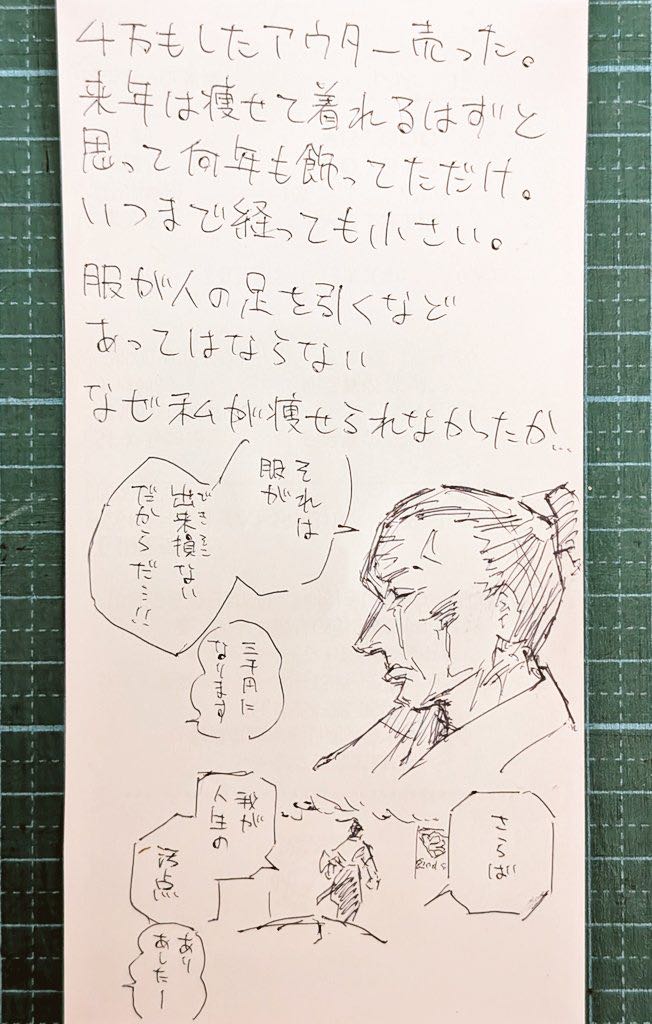 4万もしたアウター売った。
来年は痩せて着れるはずと
思って何年も飾ってただけ。
いつまで経っても小さい。
服が人の足を引くなど
あってはならない
なぜ私が痩せられなかったか…
それは
服が
出来損ない
できそこ
だからだ…!!
三千円に
なります
さらば
我が
人生の
汚点
あり
あしたー